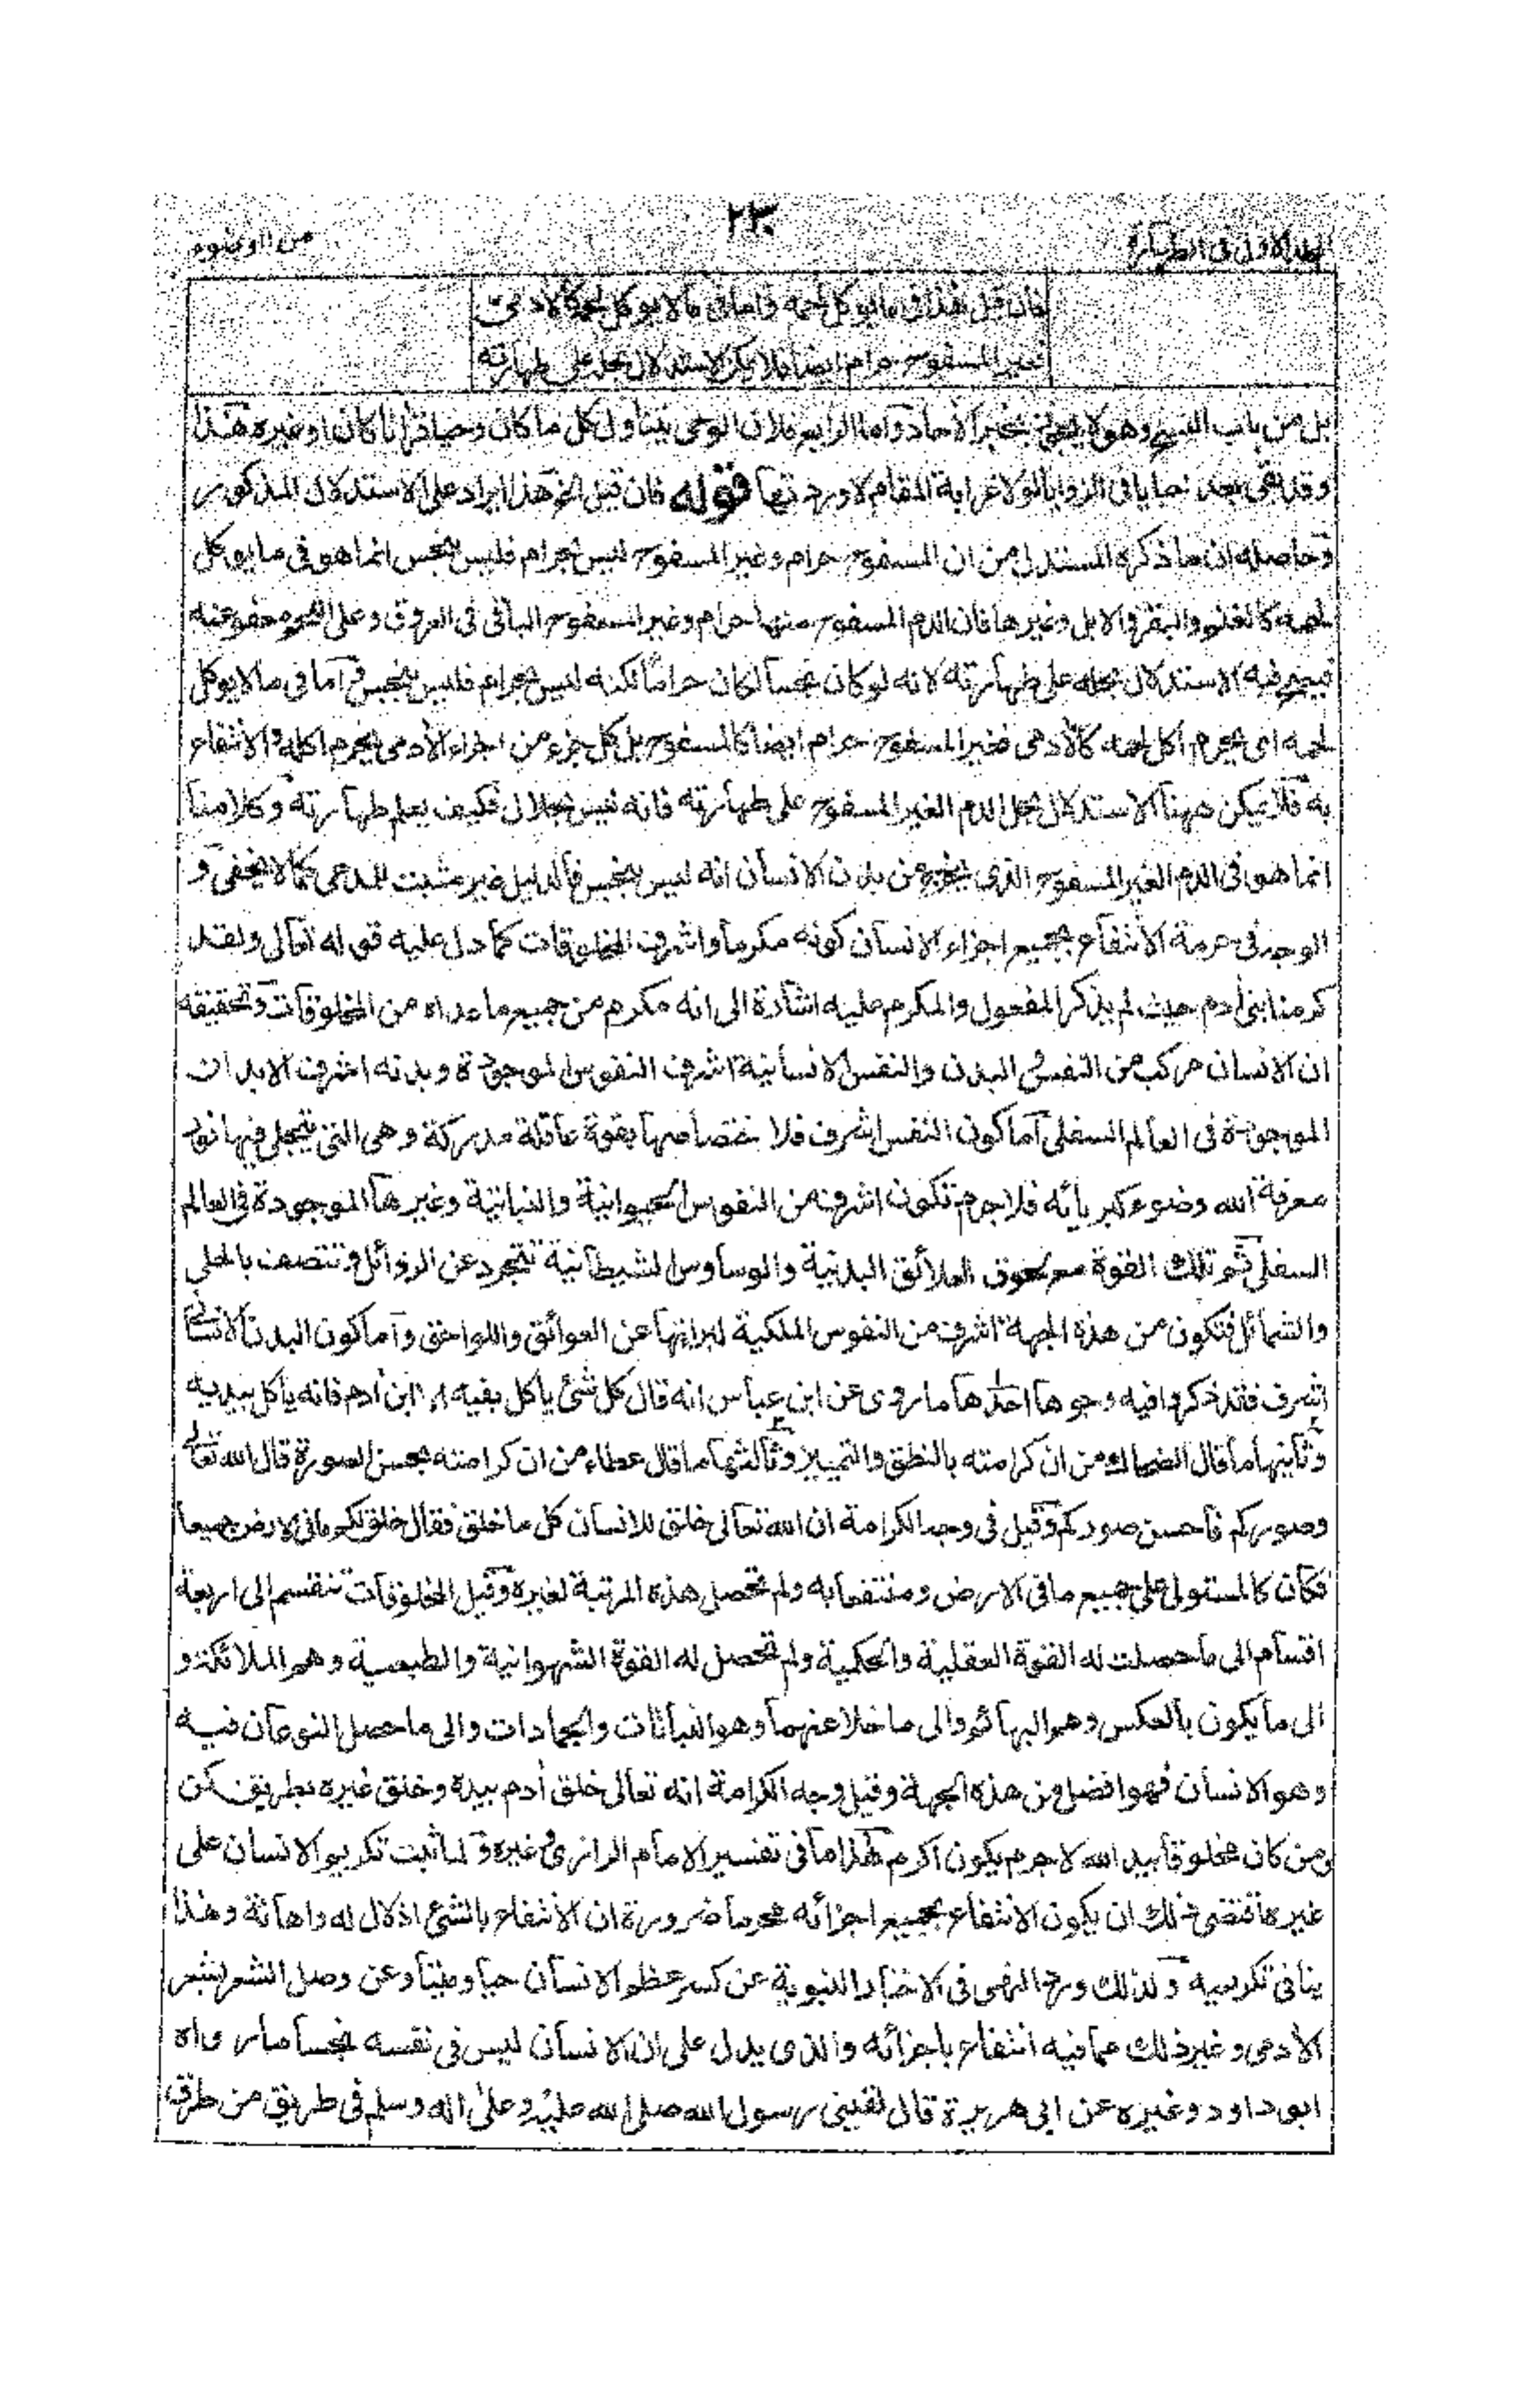 ٢٣٠
المجلد الاول فى الطهارة
من الوضوء
فان قيل هذا فى ما يوكل لحمه واما فى مالا يوكل لحمه كالأدمى
غير المسفوح حرام ايضا فلا يمكن الاستدلال بحله على طهارته
بل من باب النسخ وهو لا يجوز بخبر الأحاد وآما الرابع فلان الوحى يتناول كل ما كان وحيا قرأنا كان او غيره هذا
وقد بقى بعد خبايا فى الزوايا لولا غرابة المقام لاوردتها قوله فان قيل الخ هذا ايراد على الاستدلال المذكور
وحاصله ان ما ذكره المستدل من ان المسفوح حرام وغير المسفوح ليس بحرام فليس بنجس انما هو فى ما يوكل
لحمه كالغنم والبقر والابل وغيرها فان الدم المسفوح منها حرام وغير المسفوح الباقى فى العروق وعلى اللحم معفو عنه
فيصح فيه الاستدلال بحله على طهارته لانه لو كان نجسا لكان حراما لكنه ليس بحرام فليس بنجس وآما فى ما لا يوكل
لحمه اى يحرم اكل لحمه كالأدمى فغير المسفوح حرام ايضا كالمسفوح بل كل جزء من اجزاء الأدمى يحرم اكله والانتفاع
به فلا يمكن ههنا الاستدلال بحل الدم الغير المسفوح على طهارته فانه ليس بحلال فكيف يعلم طهارته وكلامنا
انما هو فى الدم الغير المسفوح الذى يخرج من بدن الانسان انه ليس بنجس فالدليل غير مثبت للمدعى كما لا يخفى و
الوجه فى حرمة الانتفاع بجميع اجزاء الانسان كونه مكرما واشرف المخلوقات كما دل عليه قوله تعالى ولقد
كرمنا بنى أدم حيث لم يذكر المفعول والمكرم عليه اشارة الى انه مكرم من جميع ما عداه من المخلوقات وتحقيقه
ان الانسان مركب من النفس والبدن والنفس الانسانية اشرف النفوس الموجودة وبدنه اشرف الابدان
الموجودة فى العالم السفلى آما كون النفس اشرف فلاختصاصها بقوة عاقلة مدركة وهى التى يتجلى فيها نور
معرفة الله وضوء كبريائه فلا جرم تكون اشرف من النفوس الحيوانية والنباتية وغيرها الموجودة فى العالم
السفلى ثم تلك القوة مع لحوق العلائق البدنية والوساوس الشيطانية تتجرد عن الرذائل وتتصف بالحلى
والشمائل فتكون من هذه الجهة اشرف من النفوس الملكية لبرائتها عن العوائق واللواحق وآما كون البدن الانسانى
اشرف فقد ذكروا فيه وجوها احدها ما روى عن ابن عباس انه قال كل شئ يأكل بفيه الا ابن أدم فانه يأكل بيديه
وثانيها ما قال الضحاك من ان كرامته بالنطق والتمييز وثالثها ما قال عطاء من ان كرامته بحسن الصورة قال الله تعالى
وصوركم فأحسن صوركم وقيل فى وجه الكرامة ان الله تعالى خلق للانسان كل ما خلق فقال خلق لكم ما فى الارض جميعا
فكان كالمستولى على جميع ما فى الارض ومنتفعا به ولم تحصل هذه المرتبة لغيره وقيل المخلوقات تنقسم الى اربعة
اقسام الى ما حصلت له القوة العقلية والحكمية ولم تحصل له القوة الشهوانية والطبعية وهم الملائكة و
الى ما يكون بالعكس وهم البهائم والى ما خلا عنهما وهو النباتات والجمادات والى ما حصل النوعان فيه
وهو الانسان فهو افضل من هذه الجهة وقيل وجه الكرامة انه تعالى خلق أدم بيده وخلق غيره بطريق كن
ومن كان مخلوقا بيد الله لا جرم يكون اكرم هذا ما فى تفسير الامام الرازى وغيره ولما ثبت تكريم الانسان على
غيره اقتضى ذلك ان يكون الانتفاع بجميع اجزائه محرما ضرورة ان الانتفاع بالشئ اذلال له واهانة وهذا
ينافى تكريميه ولذلك ورد النهى فى الاخبار النبوية عن كسر عظم الانسان حيا وميتا وعن وصل الشعر بشعر
الأدمى وغير ذلك مما فيه انتفاع بأجزائه والذى يدل على ان الانسان ليس فى نفسه نجسا ما رواه
ابو داود وغيره عن ابى هريرة قال لقينى رسول الله صلى الله عليه وعلى اله وسلم فى طريق من طرق